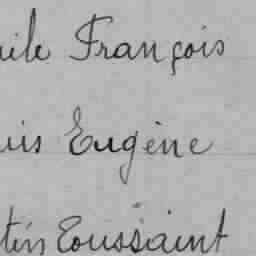 ile François
uis Eugène
tin Toussaint